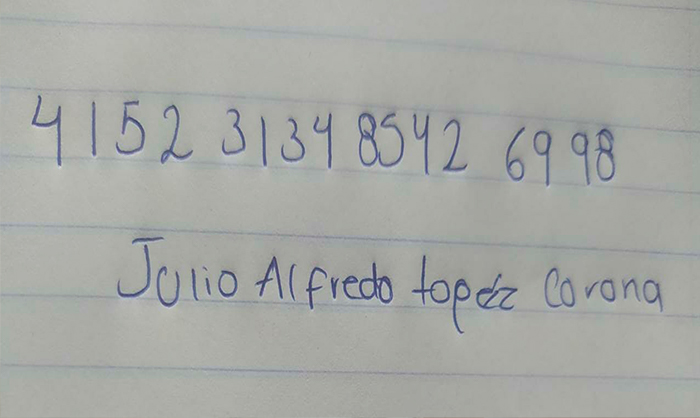 4152 3134 8542 6998
Julio Alfredo topez Corona